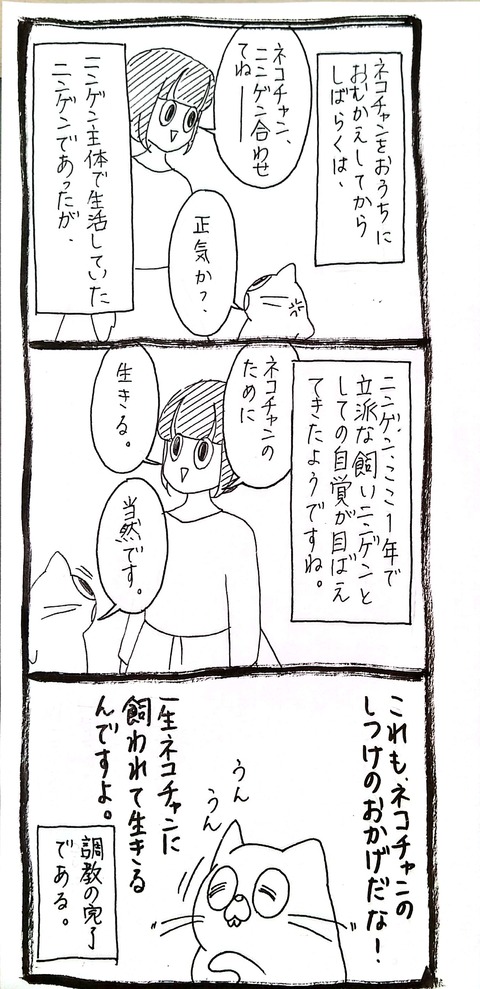 ネコチャンをおうちに
おむかえしてから
しばらくは、
ネコチャン、
ニンゲン合わせ
てね――
正気か？
ニンゲン主体で生活していた
ニンゲンであったが、
ニンゲン、ここ1年で
立派な飼いニンゲンと
しての自覚が目ばえ
てきたようですね。
ネコチャンの
ために
生きる。
当然です。
これも、ネコチャンの
しつけのおかげだな！
うん
うん
一生ネコチャンに
飼われて生きる
んですよ。
調教の完了
である。